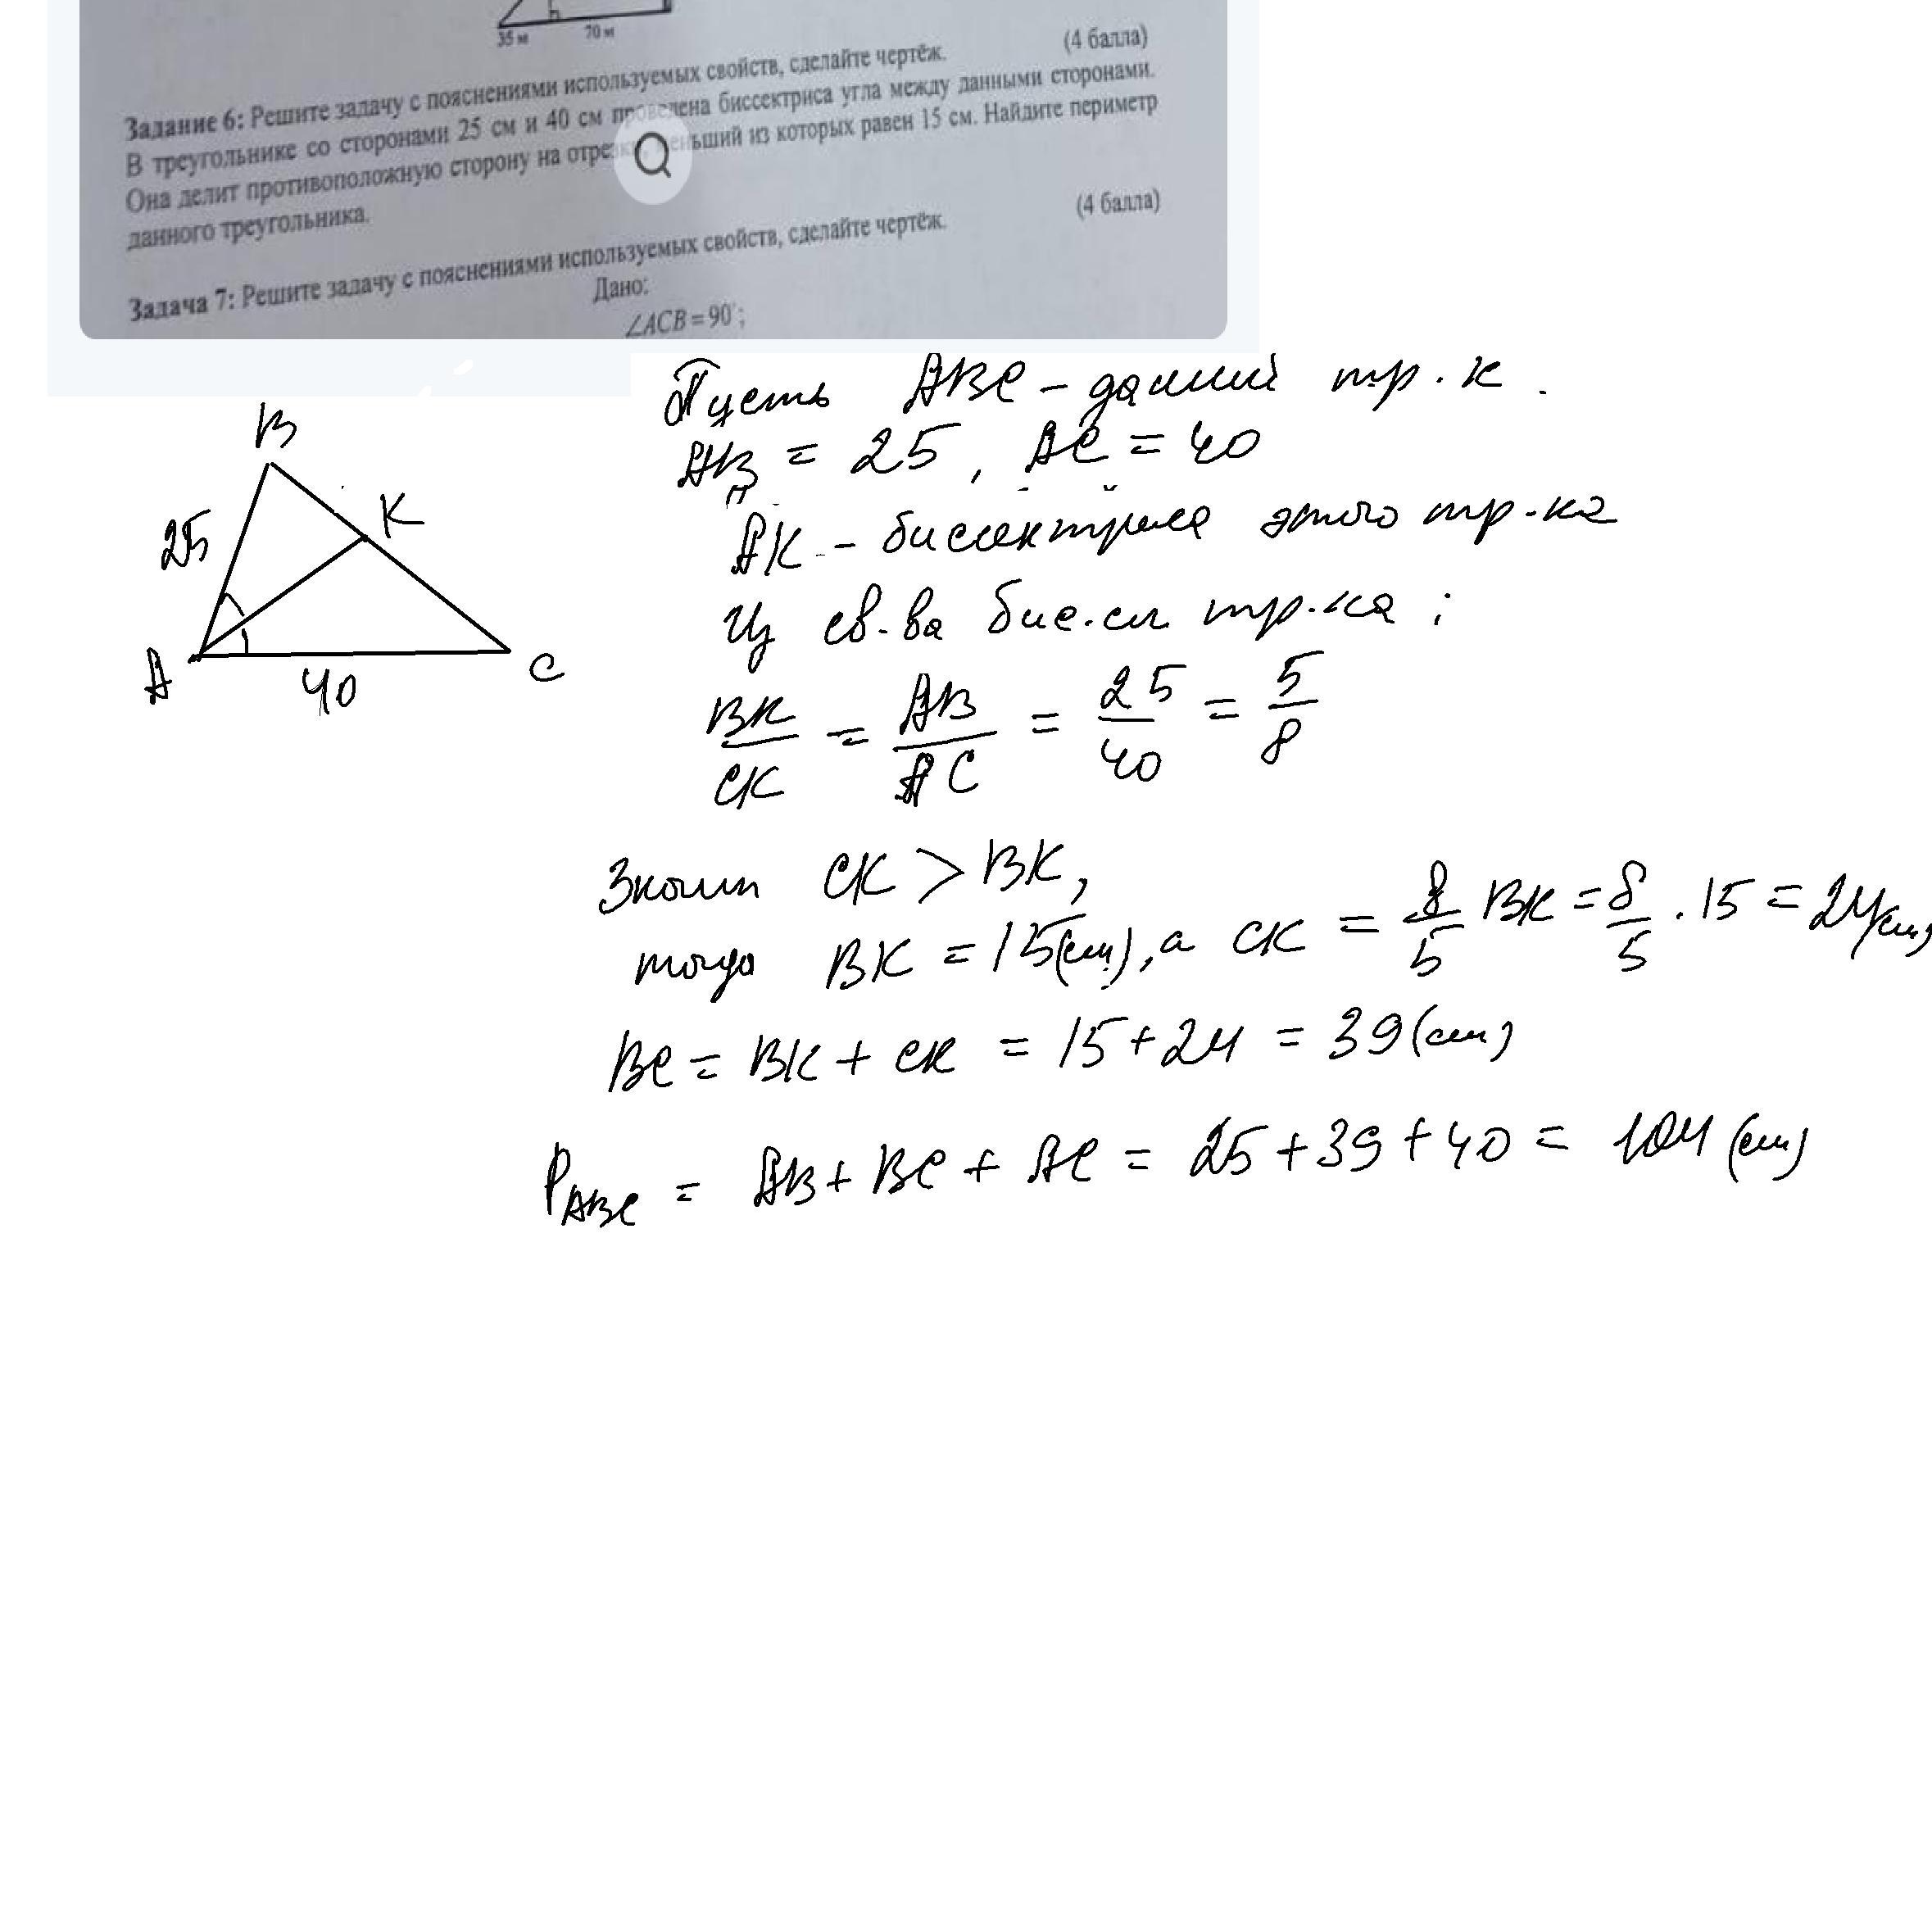 35 м 70 м
Задание 6: Решите задачу с пояснениями используемых свойств, сделайте чертёж. (4 балла)
В треугольнике со сторонами 25 см и 40 см проведена биссектриса угла между данными сторонами.
Она делит противоположную сторону на отрезки, меньший из которых равен 15 см. Найдите периметр
данного треугольника.
Задача 7: Решите задачу с пояснениями используемых свойств, сделайте чертёж. (4 балла)
Дано:
∠ACB = 90°;
B
K
25
A
40
C
Пусть ABC - данный тр.к.
AB = 25, AC = 40
AK - биссектриса этого тр-ка
Из св-ва бис.сы тр.ка:
BK/CK = AB/AC = 25/40 = 5/8
Значит CK > BK,
тогда BK = 15(см), а CK = 8/5 BK = 8/5 · 15 = 24(см)
BC = BK + CK = 15 + 24 = 39 (см)
P ABC = AB + BC + AC = 25 + 39 + 40 = 104 (см)